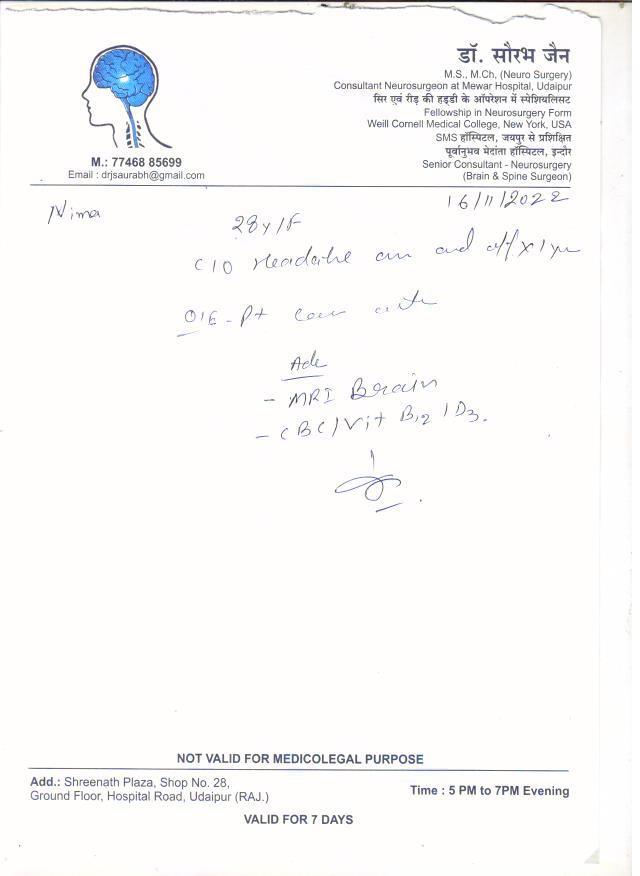 डॉ. सौरभ जैन
M.S., M.Ch. (Neuro Surgery)
Consultant Neurosurgeon at Mewar Hospital, Udaipur
सिर एवं रीड़ की हड्डी के ऑपरेशन में स्पेशियलिसट
Fellowship in Neurosurgery Form
Weill Cornell Medical College, New York, USA
SMS हॉस्पिटल, जयपुर से प्रशिक्षित
पूर्वानुभव मेदांता हॉस्पिटल, इन्दौर
Senior Consultant - Neurosurgery
(Brain & Spine Surgeon)
M.: 77468 85699
Email : drjsaurabh@gmail.com
Nima
16/11/2022
28y/F
C/O Headache on and off x 1 yr
O/E - Pt
Adv
- MRI Brain
- CBC/Vit B12/D3.
NOT VALID FOR MEDICOLEGAL PURPOSE
Add.: Shreenath Plaza, Shop No. 28,
Ground Floor, Hospital Road, Udaipur (RAJ.)
Time : 5 PM to 7PM Evening
VALID FOR 7 DAYS